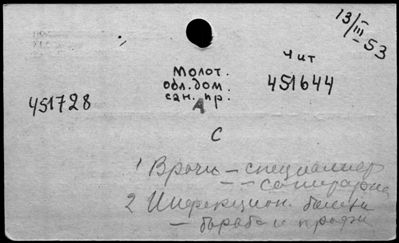 13/III-53
Чит
Молот.
обл. дом.
сан. пр.
451644
451728
А
С
1 Врачи – специалист
– – санитарна
2 Инфекцион. болезни
– борьба и профи